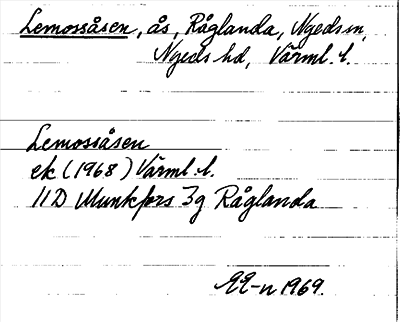 Lemossåsen, ås, Råglanda, Nyeds sn,
Nyeds hd, Värml. l.
Lemossåsen
ek (1968) Värml. l.
11D Munkfors 3g Råglanda
1969.